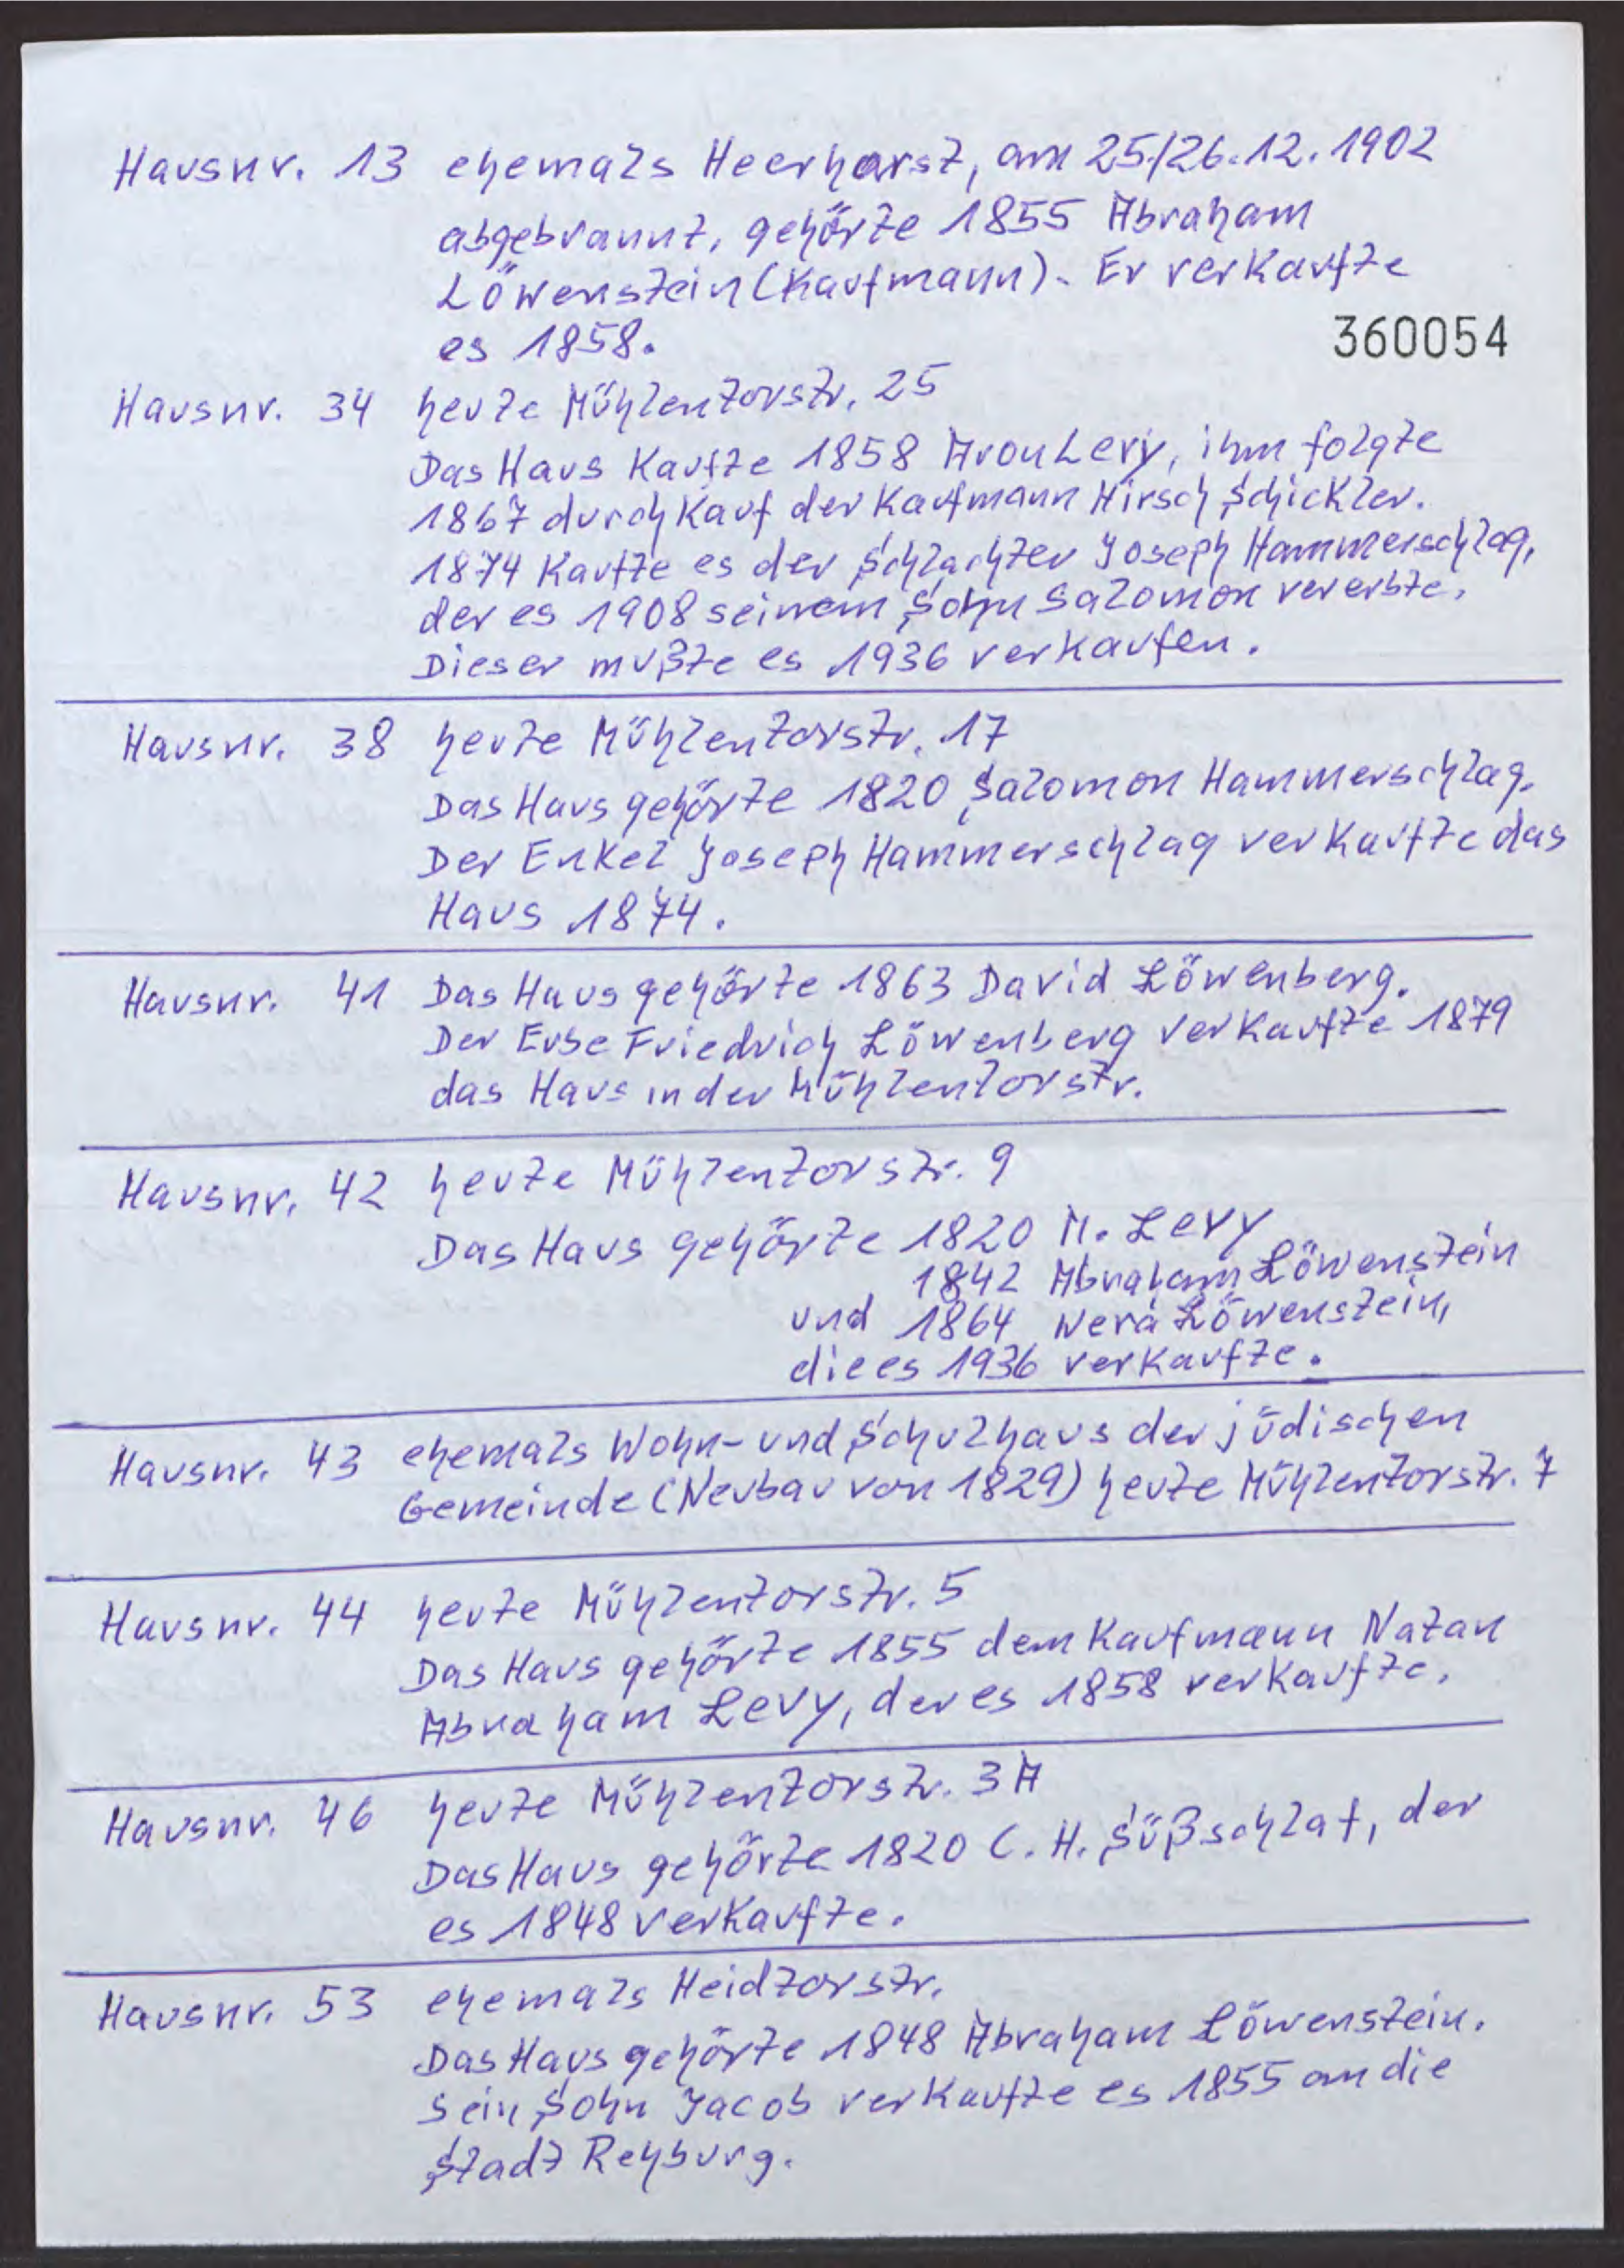 Hausnr. 13 ehemals Heerharst, am 25./26.12.1902
abgebrannt, gehörte 1855 Abraham
Löwenstein (Kaufmann). Er verkaufte
es 1858.
360054
Hausnr. 34 heute Mühlentorstr. 25
Das Haus kaufte 1858 Aron Levy, ihm folgte
1867 durch Kauf der Kaufmann Hirsch Schickler.
1874 kaufte es der Schlachter Joseph Hammerschlag,
der es 1908 seinem Sohn Salomon vererbte.
Dieser mußte es 1936 verkaufen.
Hausnr. 38 heute Mühlentorstr. 17
Das Haus gehörte 1820 Salomon Hammerschlag.
Der Enkel Joseph Hammerschlag verkaufte das
Haus 1874.
Hausnr. 41 Das Haus gehörte 1863 David Löwenberg.
Der Erbe Friedrich Löwenberg verkaufte 1879
das Haus in der Mühlentorstr.
Hausnr. 42 heute Mühlentorstr. 9
Das Haus gehörte 1820 M. Levy
1842 Abraham Löwenstein
und 1864 Wera Löwenstein,
die es 1936 verkaufte.
Hausnr. 43 ehemals Wohn- und Schulhaus der jüdischen
Gemeinde (Neubau von 1829) heute Mühlentorstr. 7
Hausnr. 44 heute Mühlentorstr. 5
Das Haus gehörte 1855 dem Kaufmann Natan
Abraham Levy, der es 1858 verkaufte.
Hausnr. 46 heute Mühlentorstr. 3A
Das Haus gehörte 1820 C. H. Süßschlaf, der
es 1848 verkaufte.
Hausnr. 53 ehemals Heidtorstr.
Das Haus gehörte 1848 Abraham Löwenstein.
Sein Sohn Jacob verkaufte es 1855 an die
Stadt Rehburg.